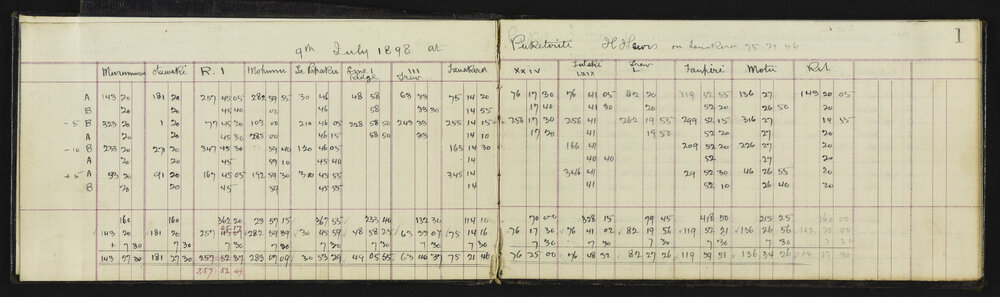 9th July 1898 at Puketoiti H Lewis on Tauakira 75 21 46
1
R. 1 Mokomu Te Papaku Tauakira XXIV Trew L Taupiri Motu Ref
A 143 20 181 20 257 45 05 282 59 55 30 46 48 58 63 33 75 14 20 76 17 30 76 41 05 82 20 119 52 55 136 27 143 20 05
B 20 20 45 40 00 46 58 33 30 14 55 17 40 41 30 20 52 20 26 50 20
-5 B 323 20 1 20 77 45 30 103 00 210 46 05 228 58 50 243 33 255 14 15 256 17 30 256 41 262 19 55 299 52 15 316 27 19 55
A 20 20 45 30 283 00 46 15 58 50 33 14 10 17 20 41 19 50 52 20 27 20
-10 B 233 20 271 20 347 45 30 59 40 120 46 05 165 14 30 166 41 209 52 20 226 27 20
A 20 20 45 59 10 45 40 14 40 40 52 27 20
+5 A 53 20 91 20 167 45 05 192 59 30 310 45 55 345 14 346 41 29 52 30 46 26 55 20
B 20 20 45 59 45 55 14 41 52 10 26 40 20
160 160 362 20 23 57 15 367 55 233 40 132 30 114 10 70 00 328 15 79 45 418 50 215 25 160 00
143 20 181 20 257 45 07 282 59 39 30 45 59 48 58 25 63 33 07 75 14 16 76 17 30 76 41 02 82 19 56 119 52 21 136 26 56 143 20 00
+ 7 30 7 30 7 30 7 30 7 30 7 30 7 30 7 30 7 30 7 30 7 30 7 30 7 30 7 30
143 27 30 181 27 30 257 52 37 283 07 09 30 53 29 49 05 55 63 40 37 75 21 46 76 25 00 76 48 32 82 27 26 119 59 51 136 34 26 143 27 30
257 52 49